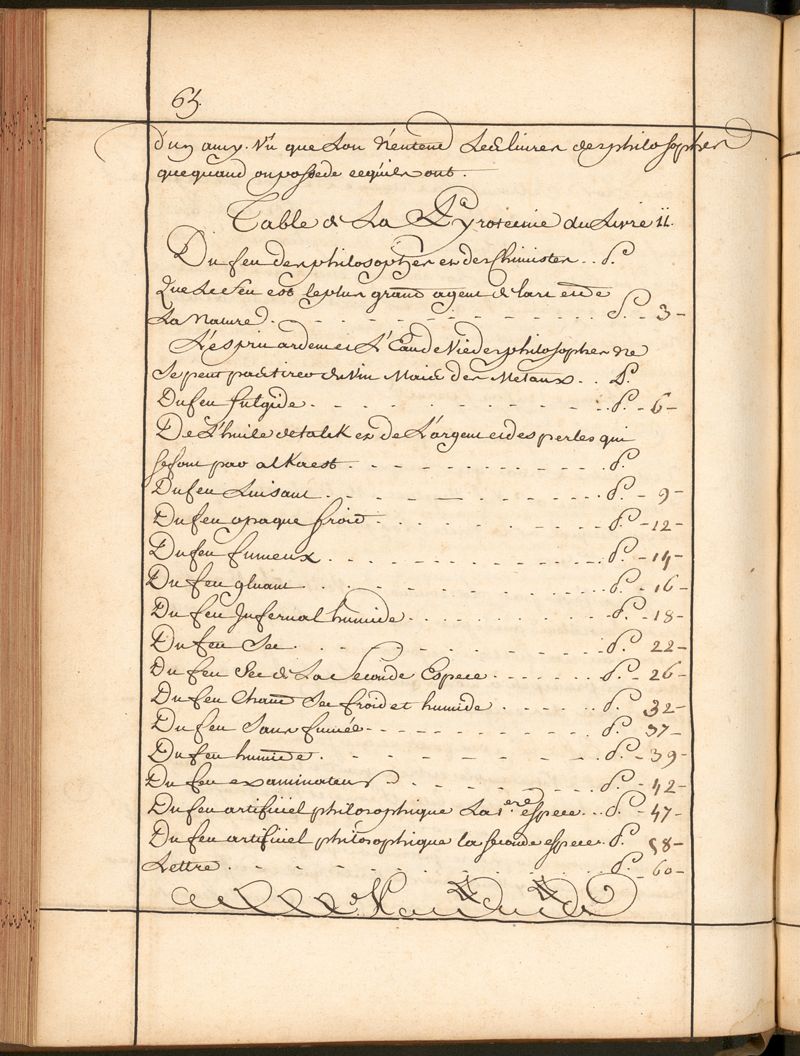 65.
d'un amy. Vu que Lon N'entend Les Livres des philosophes
que quand on possede ce qu'ils ont.
Table de La Pyrotecnie du Livre II.
Du feu des philosophes et des Chimistes .. P.
Que Le feu est le plus grand agent de lart et de
La Nature. P. - 3 -
L'esprit ardent et L'Eau de Vie des philosophes Ne
Se peut pas tirer du Vin Mais des Metaux. .. P.
Du feu fulgide. P. - 6 -
De L'huile de talck et de L'argent et des perles qui
se font par alkaest. P.
Du feu Luisant. P. - 9 -
Du feu opaque froid. P. - 12 -
Du feu fumeux. P. - 14 -
Du feu gluant. P. - 16 -
Du feu Jnfernal humide. P. - 18 -
Du feu Sec. P. 22 -
Du feu Sec de La Seconde Espece. P. - 26 -
Du feu Chaud Sec froid et humide. P. 32 -
Du feu Sans fumée. P. 37 -
Du feu humide. P. - 39 -
Du feu examinateur. P. - 42 -
Du feu artificiel philosophique La 1.ere espece... P. - 47 -
Du feu artificiel philosophique la seconde espece. P. 58 -
Lettre. P. - 60 -